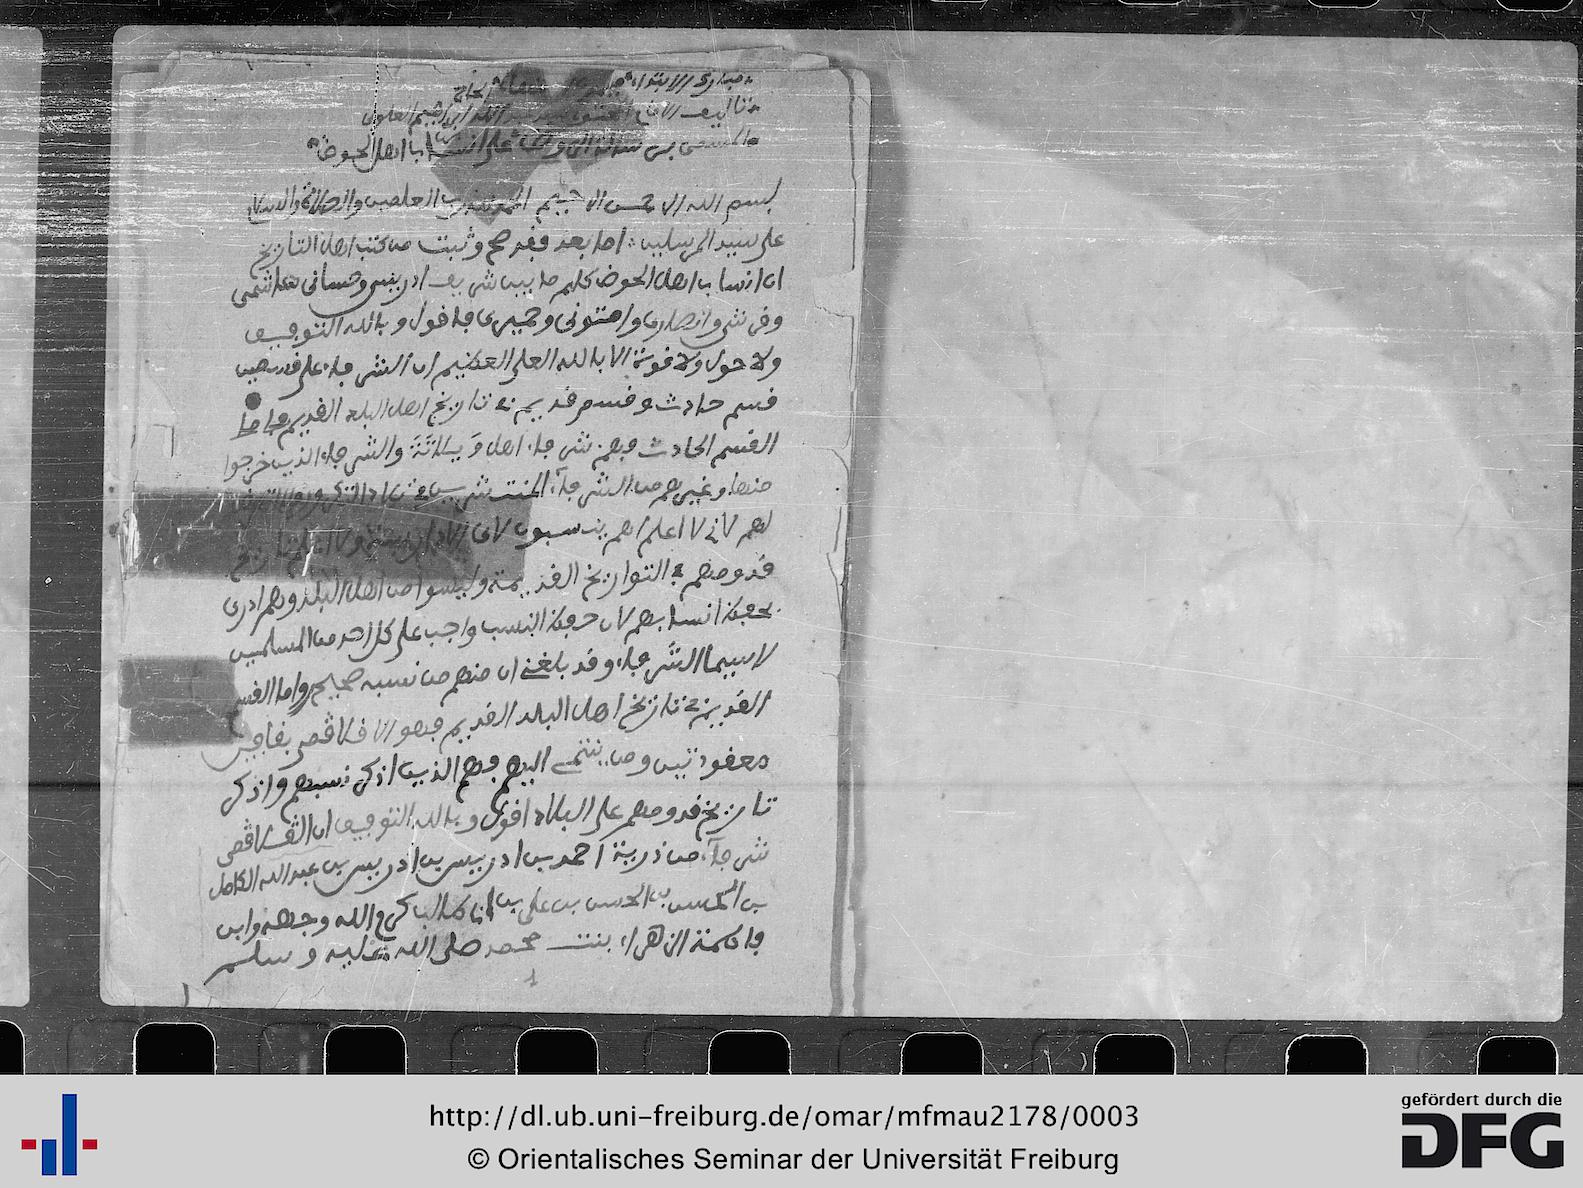 مبارك الابتداء
تاليف ابراهيم العلوي
المسمى برسالة الروض على انساب اهل الحوض
بسم الله الرحمن الرحيم الحمد لله رب العلمين والصلاة والسلام
على سيد المرسلين اما بعد فقد صح وثبت من كتب اهل التاريخ
ان انساب اهل الحوض كلهم ما بين شريف ادريسي وحساني هاشمي
وقرشي وانصاري ولمتوني وحميري فاقول وبالله التوفيق
ولا حول ولا قوة الا بالله العلي العظيم ان الشرفاء على قسمين
قسم حادث وقسم قديم في تاريخ اهل البلد القديم فاما
القسم الحادث فهم شرفاء اهل ولاتة والشرفاء الذين خرجوا
منها وغيرهم من الشرفاء
لهم لاني لا اعلم اهم ينسبون لاي ولا اعلم تاريخ
قدومهم في التواريخ القديمة وليسوا من اهل البلد وهم ادرى
بحقيقة انسابهم لان حفظ النسب واجب على كل احد من المسلمين
لاسيما الشرفاء وقد بلغني ان منهم من نسبه صحيح واما القسم
القديم في تاريخ اهل البلد القديم فهو الا فلاقم
معقودتين ومن ينتمي اليهم وهم الذين اذكر نسبهم واذكر
تاريخ قدومهم على البلاد اقول وبالله التوفيق ان القلاقم
شرفاء من ذرية احمد بن ادريس بن ادريس بن عبد الله الكامل
بن الحسن بن الحسن بن علي بن ابي طالب كرم الله وجهه وابن
فاطمة الزهراء بنت محمد صلى الله عليه وسلم
1
http://dl.ub.uni-freiburg.de/omar/mfmau2178/0003
© Orientalisches Seminar der Universität Freiburg
gefördert durch die
DFG